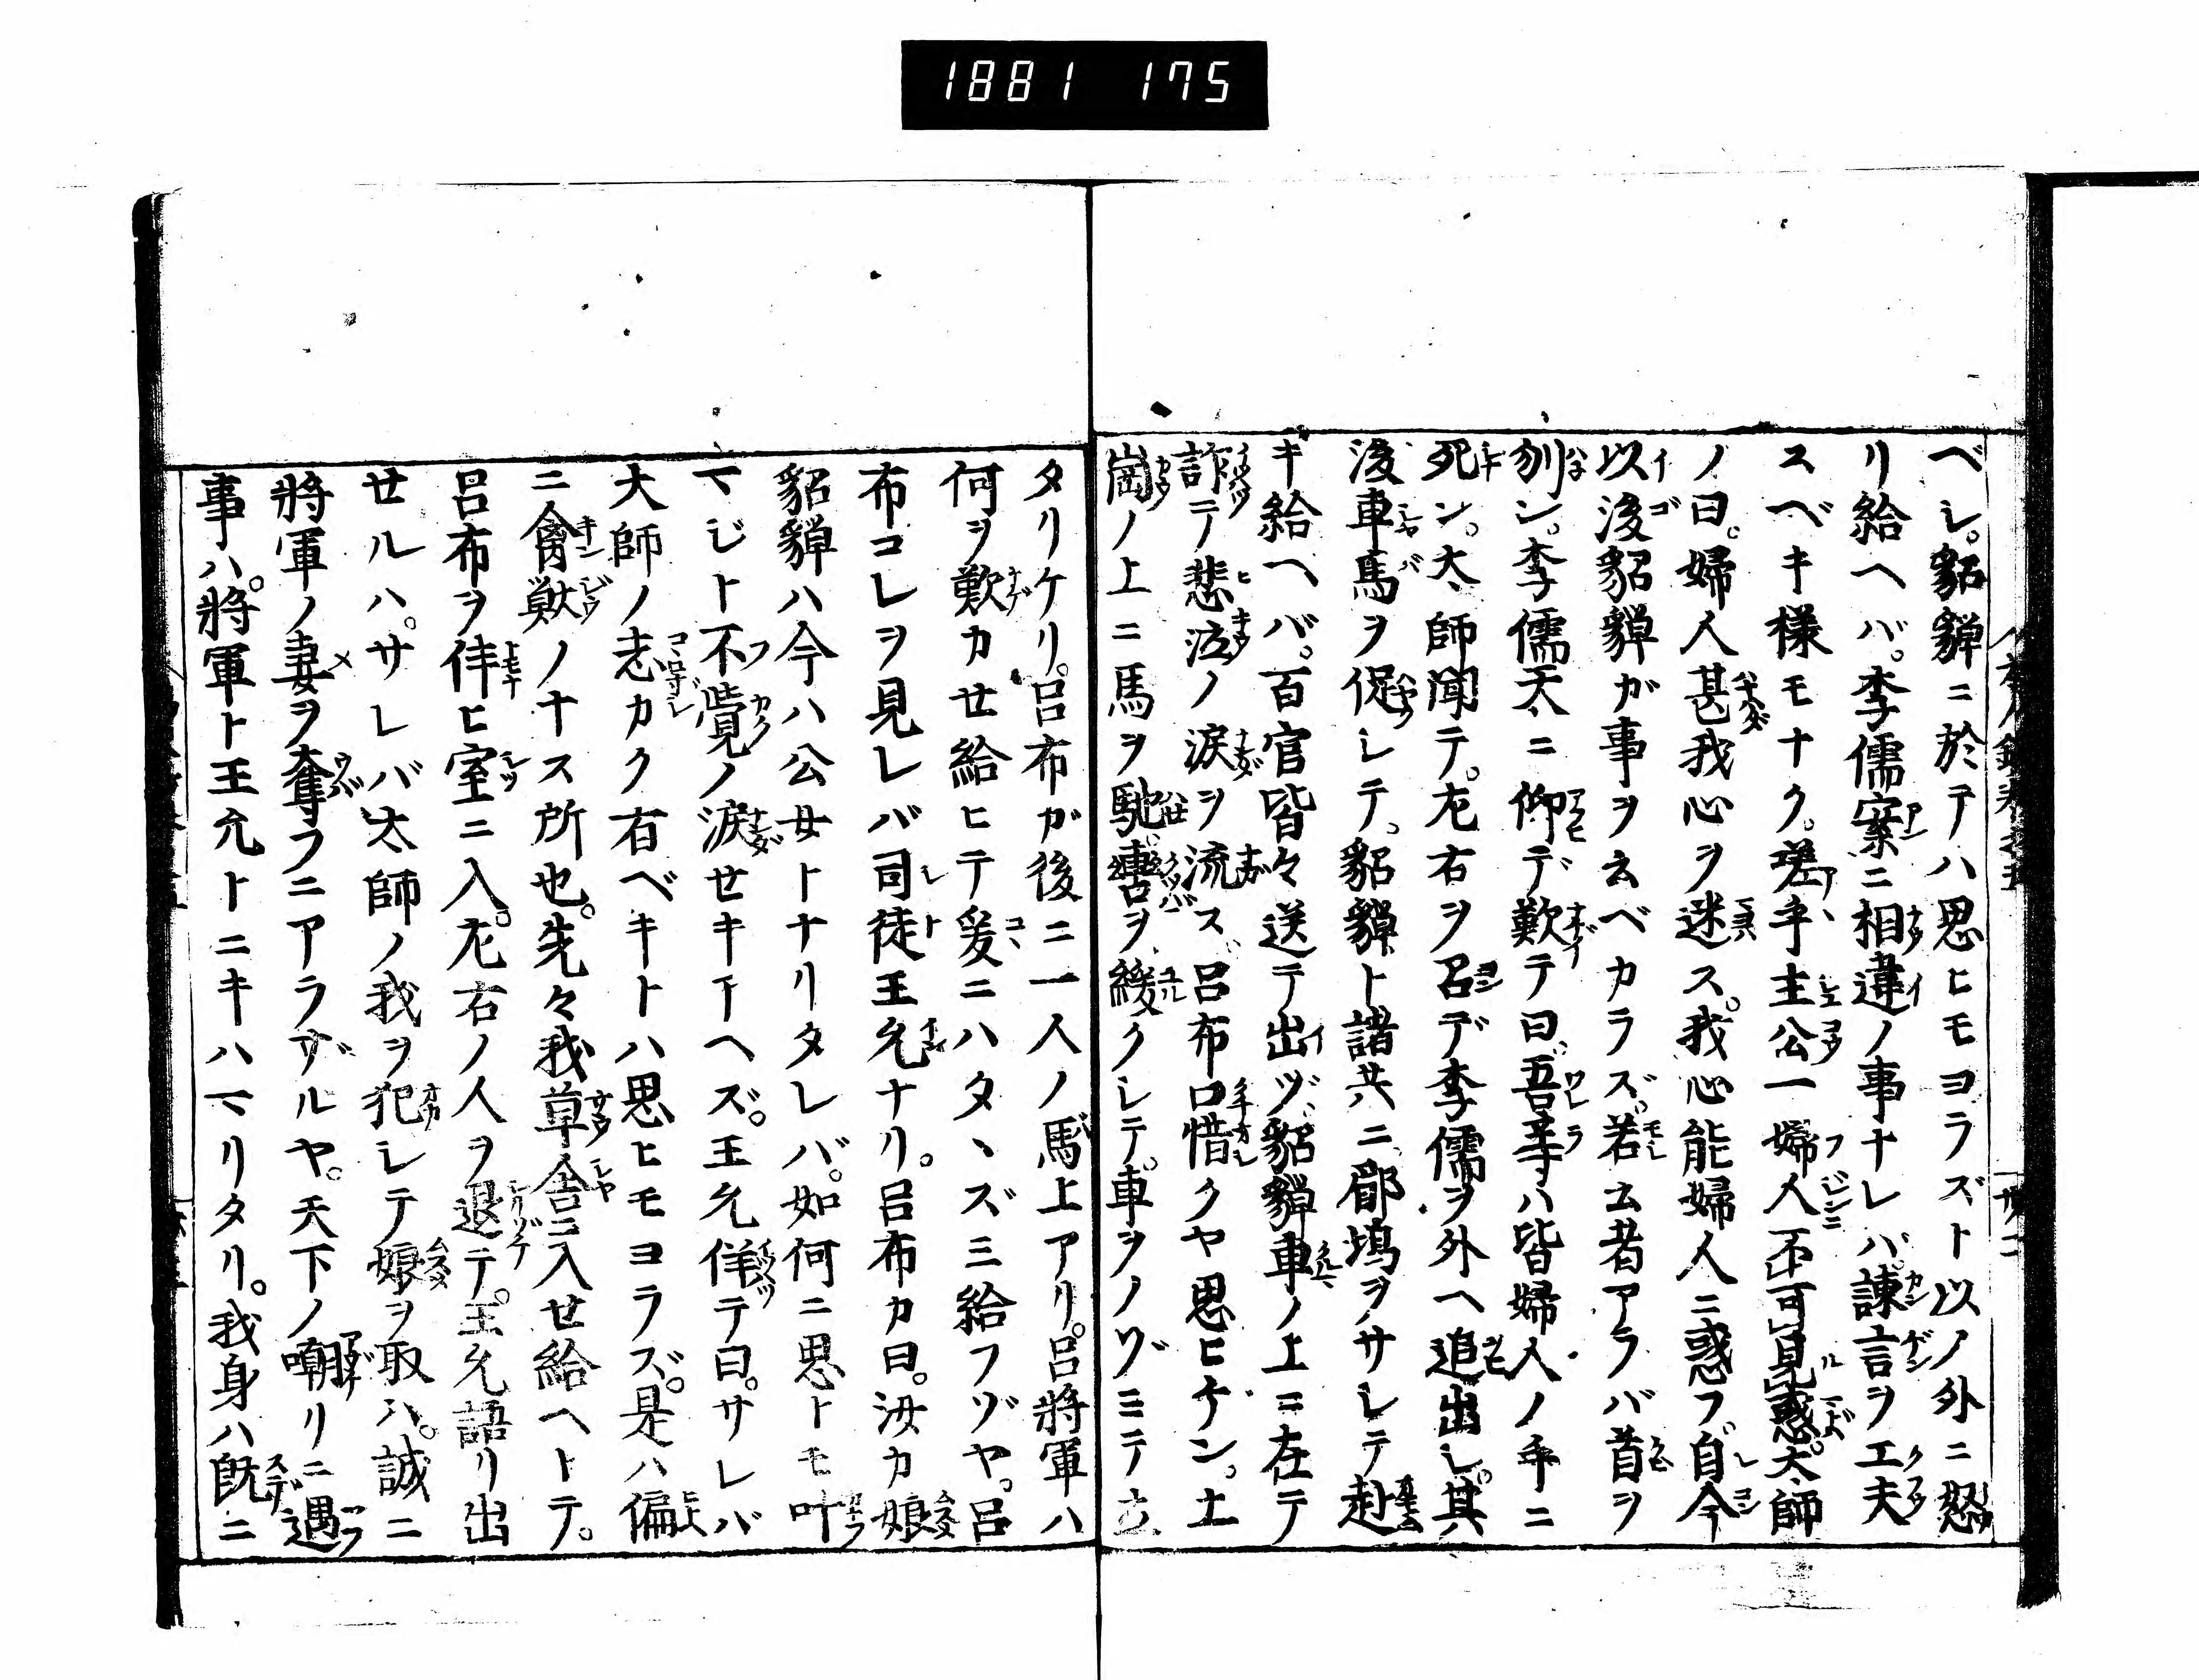 1881 175
ベシ。貂蟬ニ於テハ思ヒモヨラズト以ノ外ニ怒
リ給ヘバ。李儒案ニ相違ノ事ナレハ。諫言ヲ工夫
スベキ様モナク。嗟乎主公一婦人不可見惑。大師
ノ曰。婦人甚我心ヲ迷ス。我心能婦人ニ惑フ。自今
以後貂蟬ガ事ヲ云ベカラズ。若云者アラバ首ヲ
刎ン。李儒天ニ仰デ歎テ曰。吾等ハ皆婦人ノ手ニ
死ン。大師聞テ。左右ヲ召デ李儒ヲ外ヘ追出し。其
後車馬ヲ促シテ。貂蟬ト諸共ニ郿塢ヲサシテ赴
キ給ヘバ。百官皆々送テ出ヅ。貂蟬車ノ上ニ在テ
詐テ悲泣ノ涙ヲ流ス。呂布口惜クヤ思ヒケン。土
崗ノ上ニ馬ヲ馳。轡ヲ緩クシテ。車ヲノゾミテ立
タリケリ。呂布ガ後ニ一人ノ馬上アリ。呂將軍ハ
何ヲ歎カせ給ヒテ爰ニハタヽズミ給フゾヤ。呂
布コレヲ見レバ司徒王允ナリ。呂布カ曰。汝カ娘
貂蟬ハ今ハ公女トナリタレバ。如何ニ思トモ叶
マジト不覺ノ涙せキアヘズ。王允佯テ曰。サレバ
大師ノ志カク有ベキトハ思ヒモヨラズ。是ハ偏
ニ禽獣ノナス所也。先々我草舎ニ入せ給ヘトテ。
呂布ヲ伴ヒ室ニ入。左右ノ人ヲ退テ。王允語リ出
せルハ。サレバ太師ノ我ヲ犯シテ娘ヲ取ハ。誠ニ
將軍ノ妻ヲ奪フニアラズルヤ。天下ノ嘲リニ遇
事ハ。將軍ト王允トニキハマリタリ。我身ハ既ニ